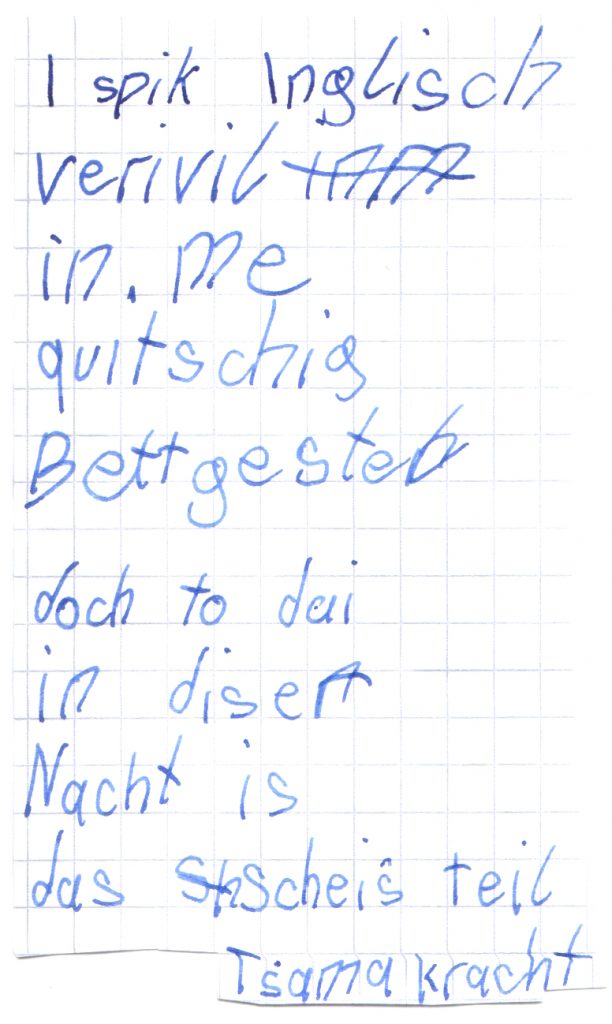 I spik Inglisch
verivil
in. me
quitschig
Bettgesteb
doch to dai
in diser
Nacht is
das Scheis teil
Tsama kracht